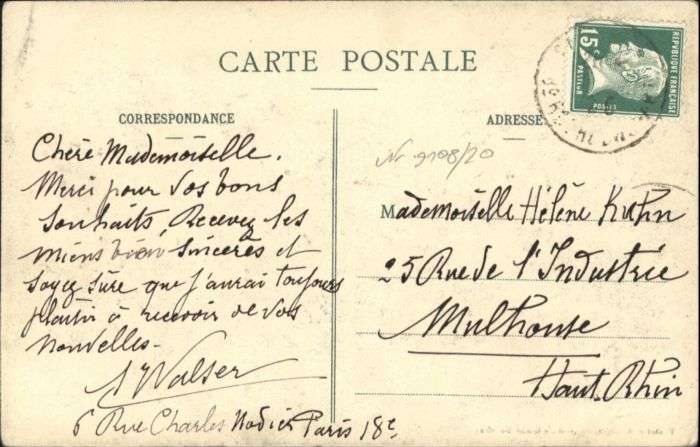 CARTE POSTALE
CORRESPONDANCE
ADRESSE
15c
REPUBLIQUE FRANÇAISE
PASTEUR
POSTES
Nr 9108/20
Chère Mademoiselle.
Merci pour vos bons
souhaits, Recevez les
miens bien sincères et
soyez sûre que j'aurai toujours
plaisir à recevoir de vos
nouvelles-
Walser
6 Rue Charles Nodier Paris 18e
Mademoiselle Hélène Kuhn
25 Rue de l'Industrie
Mulhouse
Haut. Rhin